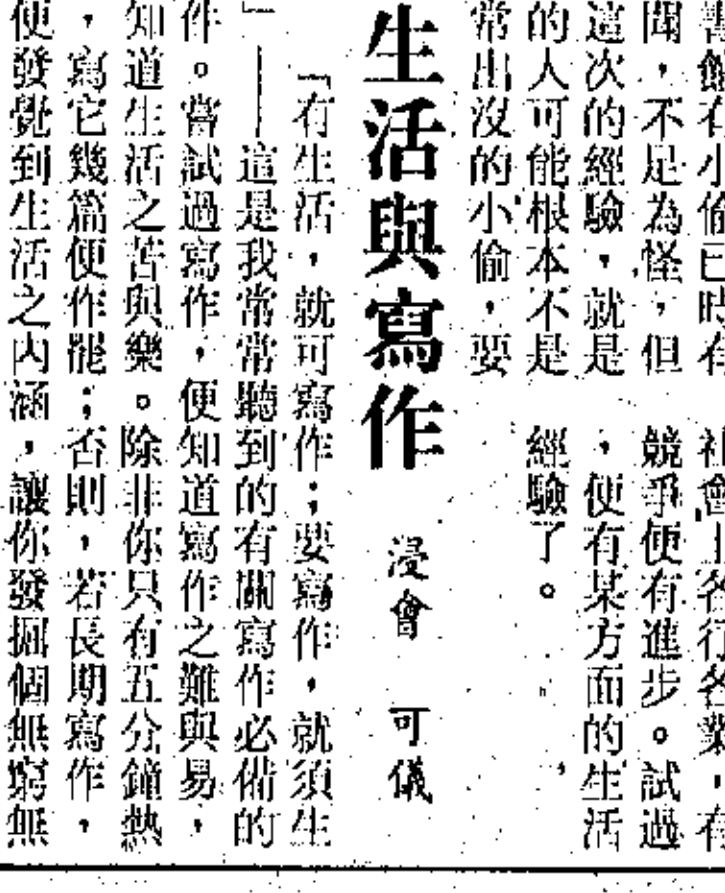 書館有小偷已時有
聞，不足為怪，但
這次的經驗，就是
的人可能根本不是
常出沒的小偷，要
社會上各行各業，有
競爭便有進步。試過
，便有某方面的生活
經驗了。
生活與寫作
浸會 可儀
「有生活，就可寫作；要寫作，就須生
」——這是我常常聽到的有關寫作必備的
件。嘗試過寫作，便知道寫作之難與易，
知道生活之苦與樂。除非你只有五分鐘熱
，寫它幾篇便作罷；否則，若長期寫作，
便發覺到生活之內涵，讓你發掘個無窮無